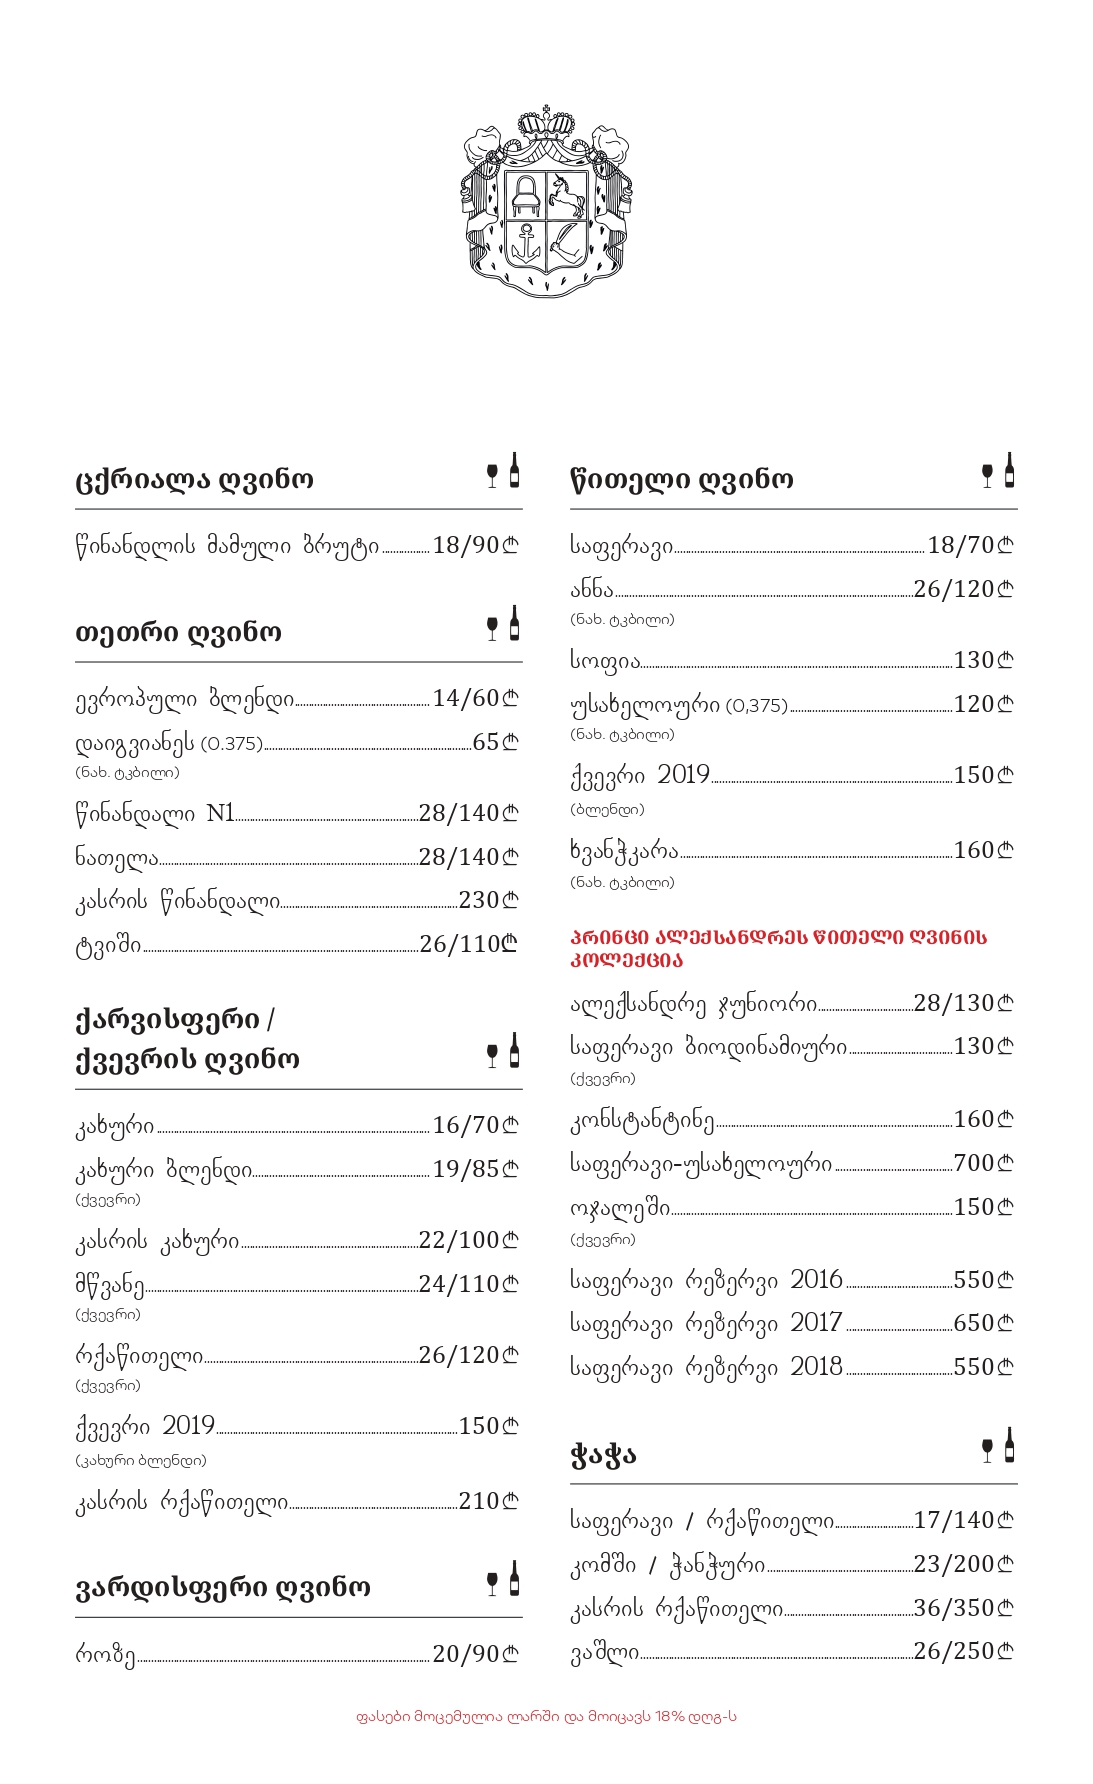 ცქრიალა ღვინო
წინანდლის მამული ბრუტი 18/90₾
თეთრი ღვინო
ევროპული ბლენდი 14/60₾
დაიგვიანეს (0.375) 65₾
(ნახ. ტკბილი)
წინანდალი N1 28/140₾
ნათელა 28/140₾
კასრის წინანდალი 230₾
ტვიში 26/110₾
ქარვისფერი /
ქვევრის ღვინო
კახური 16/70₾
კახური ბლენდი 19/85₾
(ქვევრი)
კასრის კახური 22/100₾
მწვანე 24/110₾
(ქვევრი)
რქაწითელი 26/120₾
(ქვევრი)
ქვევრი 2019 150₾
(კახური ბლენდი)
კასრის რქაწითელი 210₾
ვარდისფერი ღვინო
როზე 20/90₾
წითელი ღვინო
საფერავი 18/70₾
ანნა 26/120₾
(ნახ. ტკბილი)
სოფია 130₾
უსახელოური (0,375) 120₾
(ნახ. ტკბილი)
ქვევრი 2019 150₾
(ბლენდი)
ხვანჭკარა 160₾
(ნახ. ტკბილი)
პრინცი ალექსანდრეს წითელი ღვინის
კოლექცია
ალექსანდრე ჯუნიორი 28/130₾
საფერავი ბიოდინამიური 130₾
(ქვევრი)
კონსტანტინე 160₾
საფერავი-უსახელოური 700₾
ოჯალეში 150₾
(ქვევრი)
საფერავი რეზერვი 2016 550₾
საფერავი რეზერვი 2017 650₾
საფერავი რეზერვი 2018 550₾
ჭაჭა
საფერავი / რქაწითელი 17/140₾
კომში / ჭანჭური 23/200₾
კასრის რქაწითელი 36/350₾
ვაშლი 26/250₾
ფასები მოცემულია ლარში და მოიცავს 18% დღგ-ს